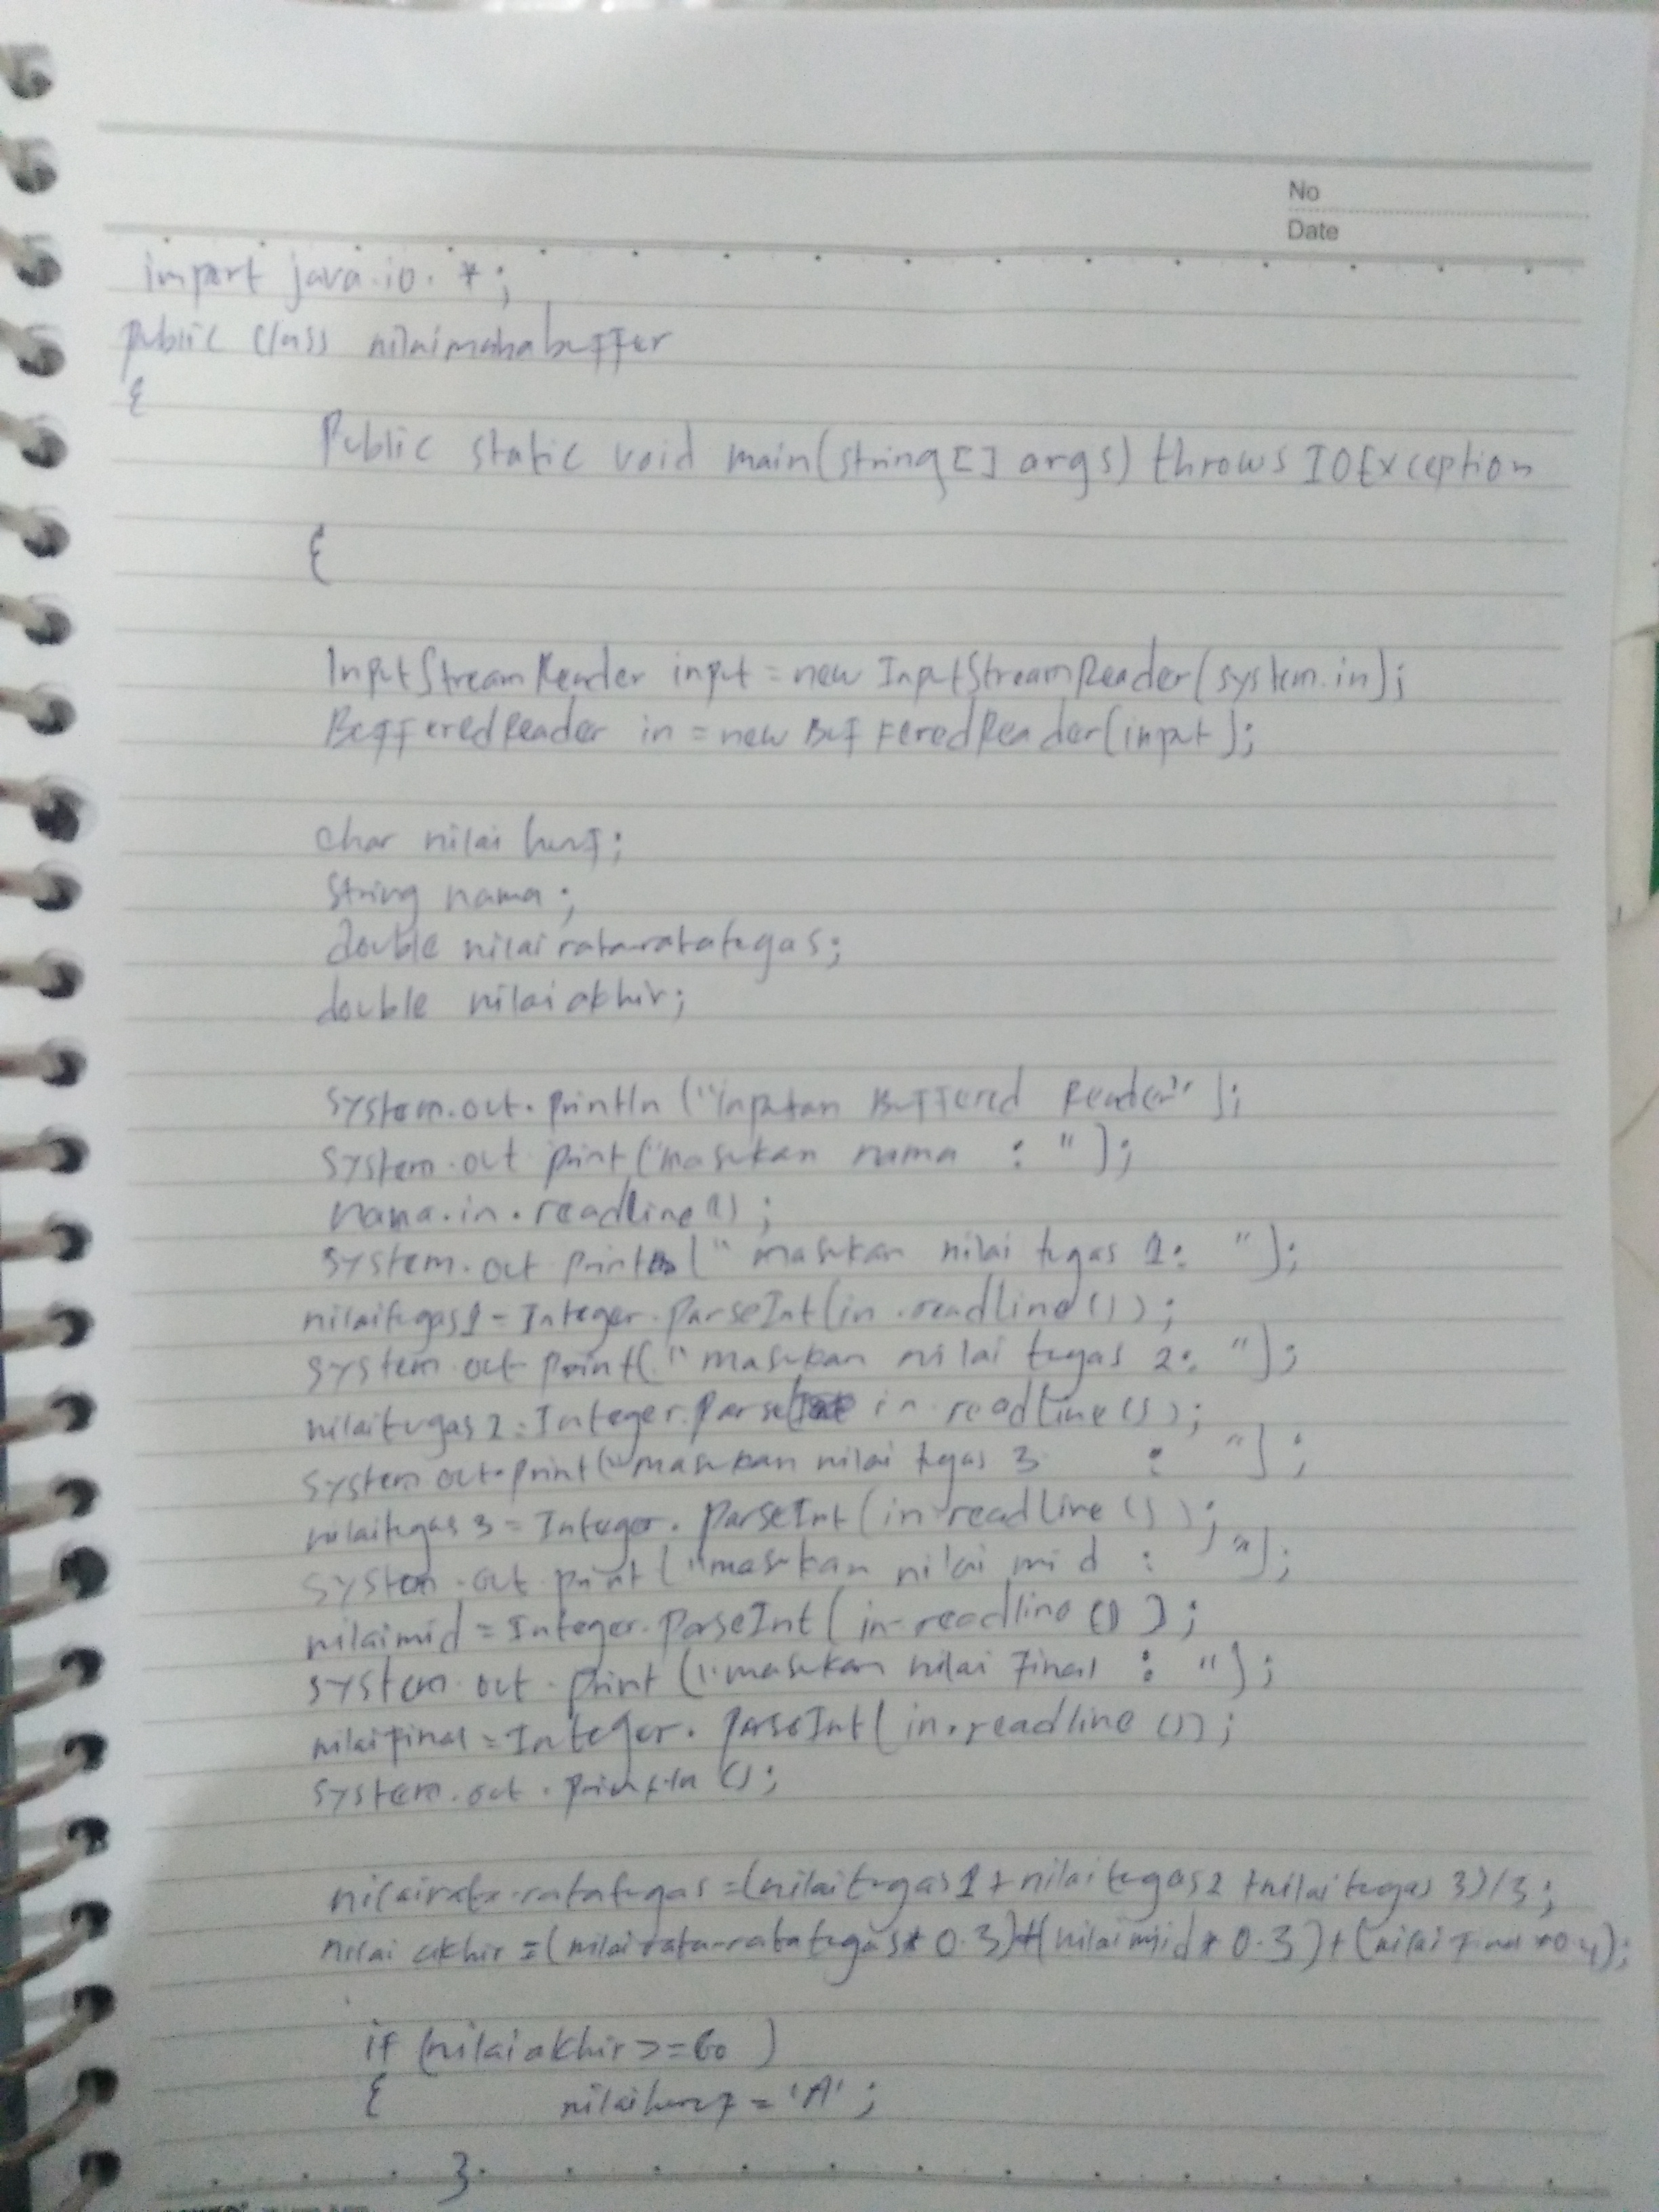 No
Date
import java.io. *;
public class nilaimahabuffer
{
Public static void main(string[] args) throws IOException
{
InputStreamReader input = new InputStreamReader(system.in);
BufferedReader in = new BufferedReader(input);
char nilai huruf;
String nama;
double nilairata-ratatugas;
double nilaiakhir;
system.out.println ("Inputan Buffered Reader");
system.out print("masukan nama : ");
nama.in.readline();
system.out print(" masukan nilai tugas 1: ");
nilaitugas1 = Integer.parseInt(in.readline());
system.out print(" masukan nilai tugas 2: ");
nilaitugas2 = Integer.parse( in.readline());
system out.print("masukan nilai tugas 3 : ");
nilaitugas 3 = Integer.parseInt(in.readline());
system.out print("masukan nilai mid : ");
nilaimid = Integer.parseInt(in-readline());
system.out.print("masukan nilai final : ");
nilaifinal = Integer.parseInt(in.readline());
system.out.println();
nilairata-ratatugas = (nilaitugas1 + nilaitugas2 + nilaitugas 3)/3;
nilai akhir = (nilairata-ratatugas* 0.3)+(nilaimid* 0.3)+(nilaifinal*0.4);
if (nilaiakhir>=60 )
{ nilaihuruf = 'A';
}